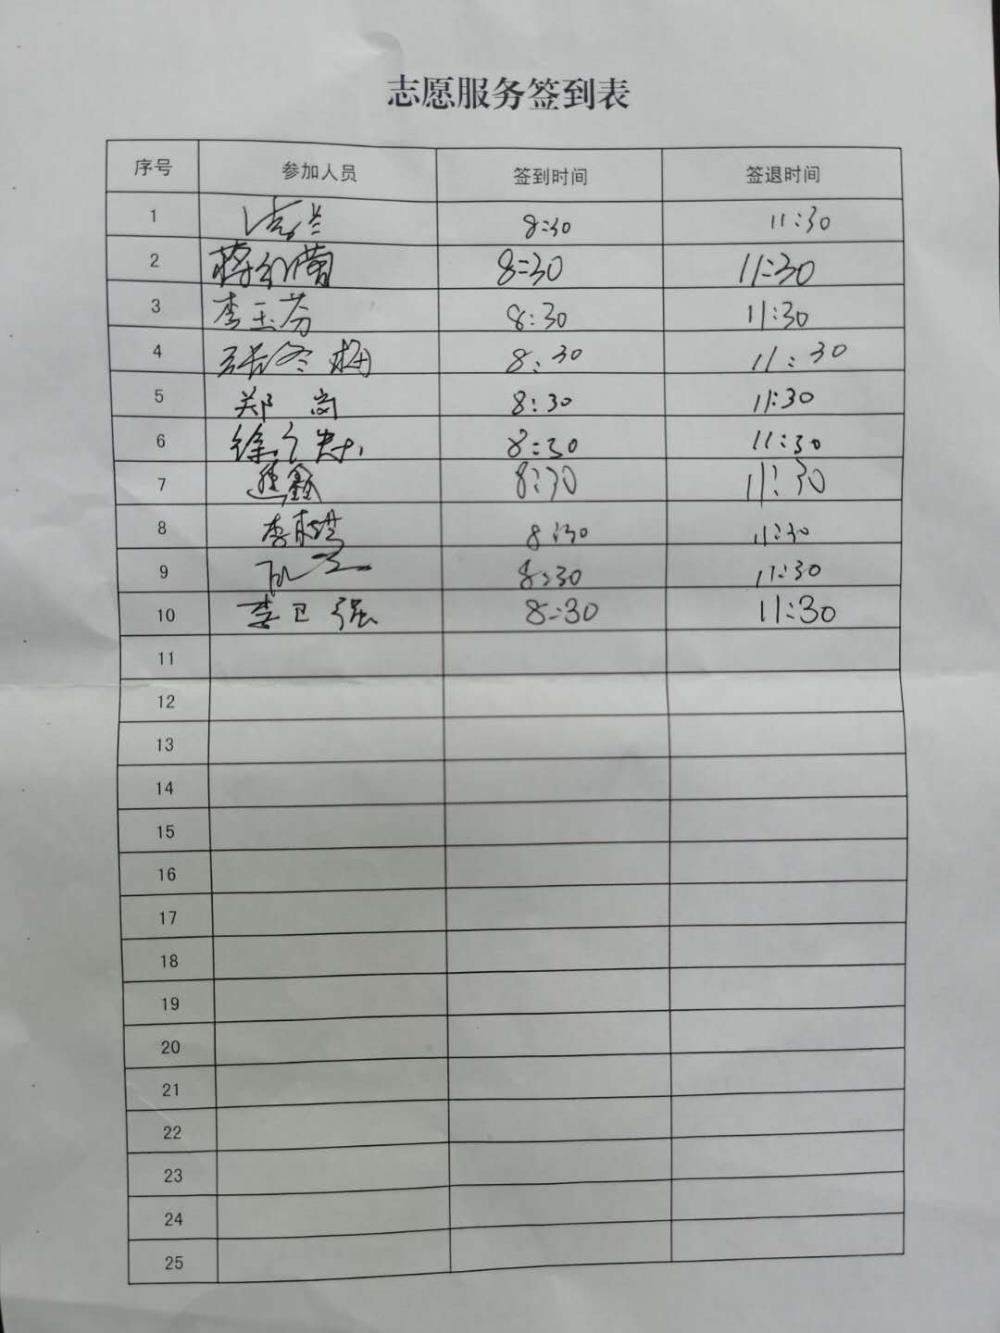 志愿服务签到表
序号 参加人员 签到时间 签退时间
1 8:30 11:30
2 蒋 8:30 11:30
3 李玉芬 8:30 11:30
4 张冬梅 8:30 11:30
5 郑岗 8:30 11:30
6 徐 8:30 11:30
7 鑫 8:30 11:30
8 李 8:30 11:30
9 8:30 11:30
10 李卫强 8:30 11:30
11
12
13
14
15
16
17
18
19
20
21
22
23
24
25